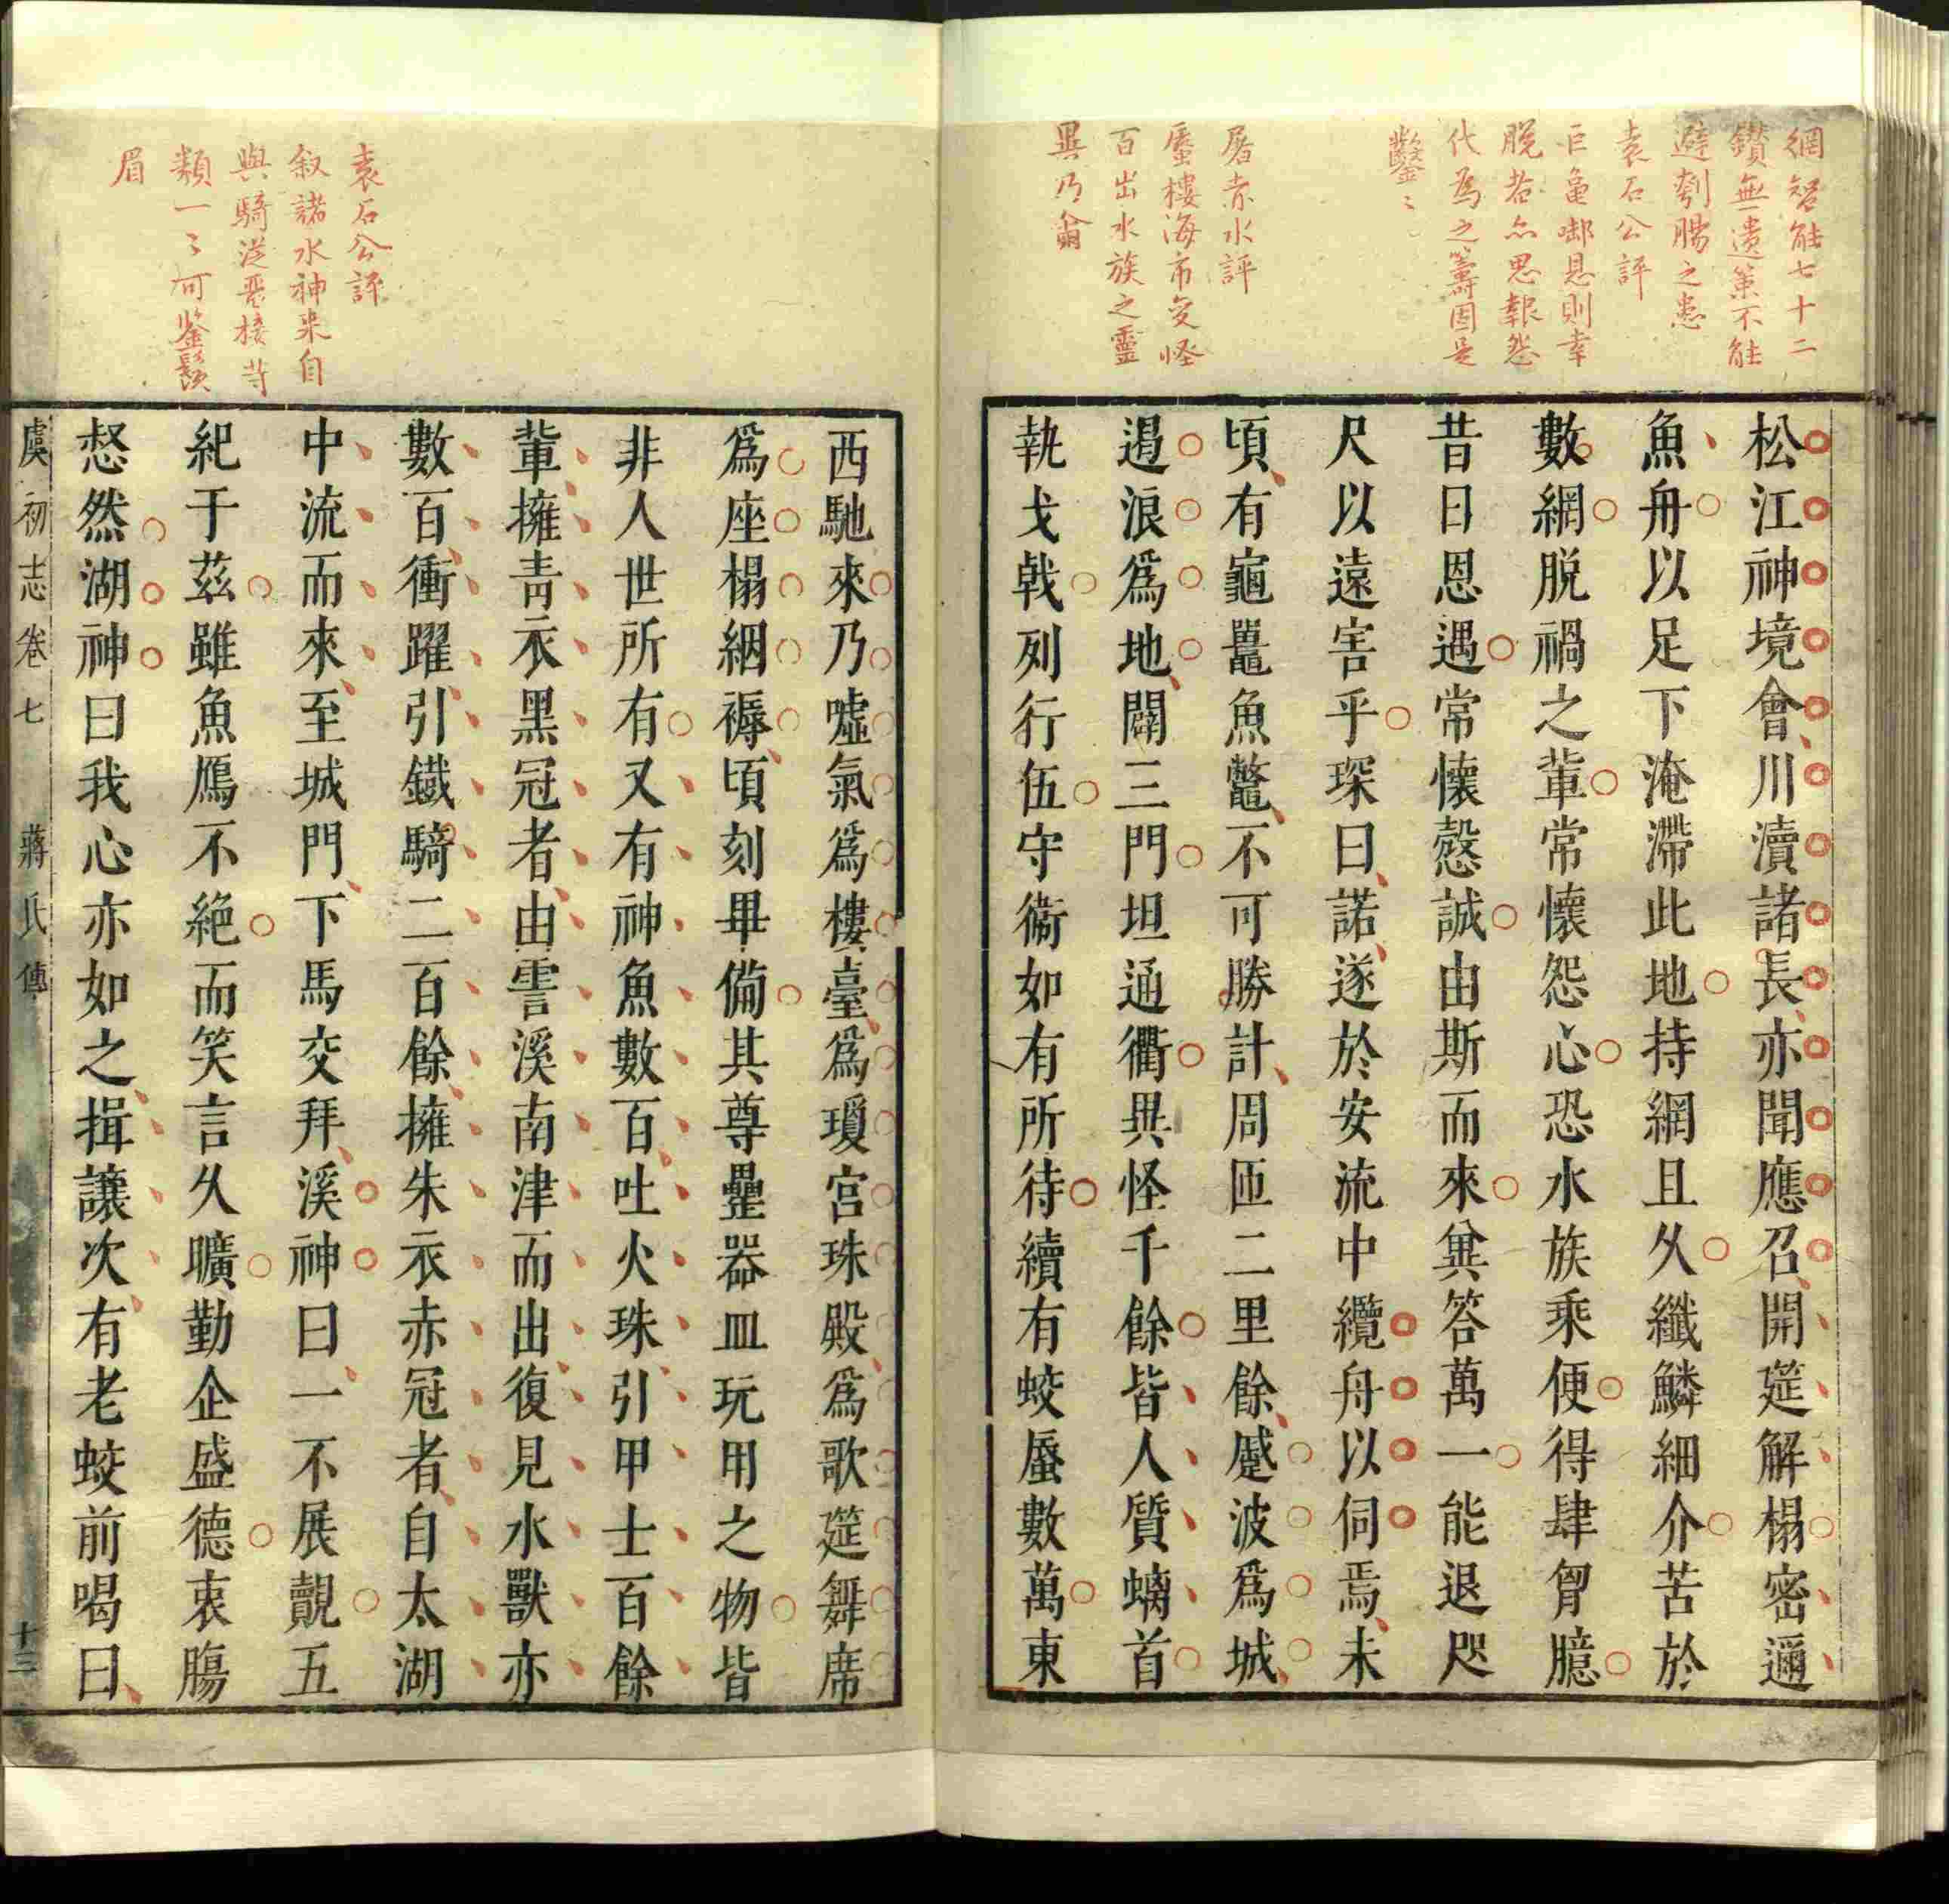 網智能七十二
鑚無遺策不能
避刳腸之患
袁石公評
巨龜啣恩則幸
脫者亦思報然
代爲之籌固是
鑿〻
屠赤水評
蜃樓海市変怪
百出水族之靈
異乃爾
松江神境會川瀆諸長亦聞應召開筵解榻密邇
魚舟以足下淹滯此地持網且久纖鱗細介苦於
數網脱禍之輩常懷怨心恐水族乘便得肆胷臆
昔日恩遇常懷慇誠由斯而來兾答萬一能退咫
尺以遠害乎琛曰諾遂於安流中纜舟以伺焉未
頃有龜鼉魚鼈不可勝計周匝二里餘蹙波爲城
遏浪爲地闢三門坦通衢異怪千餘皆人質螭首
執戈戟列行伍守衞如有所待續有蛟蜃數萬東
西馳來乃噓氣爲樓臺爲瓊宮珠殿爲歌筵舞席
爲座榻綑褥頃刻畢備其尊罍器皿玩用之物皆
非人世所有又有神魚數百吐火珠引甲士百餘
輩擁青衣黑冠者由霅溪南津而出復見水獸亦
數百衝躍引鐵騎二百餘擁朱衣赤冠者自太湖
中流而來至城門下馬交拜溪神曰一不展覿五
紀于茲雖魚鴈不絕而笑言久曠勤企盛德衷腸
惄然湖神曰我心亦如之揖讓次有老蛟前喝曰
袁石公評
叙諸水神來自
與騎送恶棲䓁
類一〻可鉴鬚
眉
虞初志卷七 蔣氏傳 十三